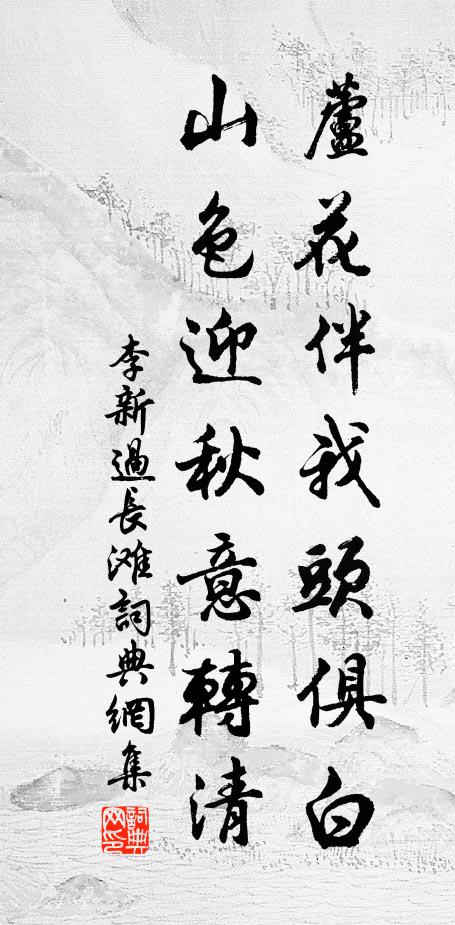 蘆花伴我頭俱白
山色迎秋意轉清
李新過長滩詞典網集
詞典网印